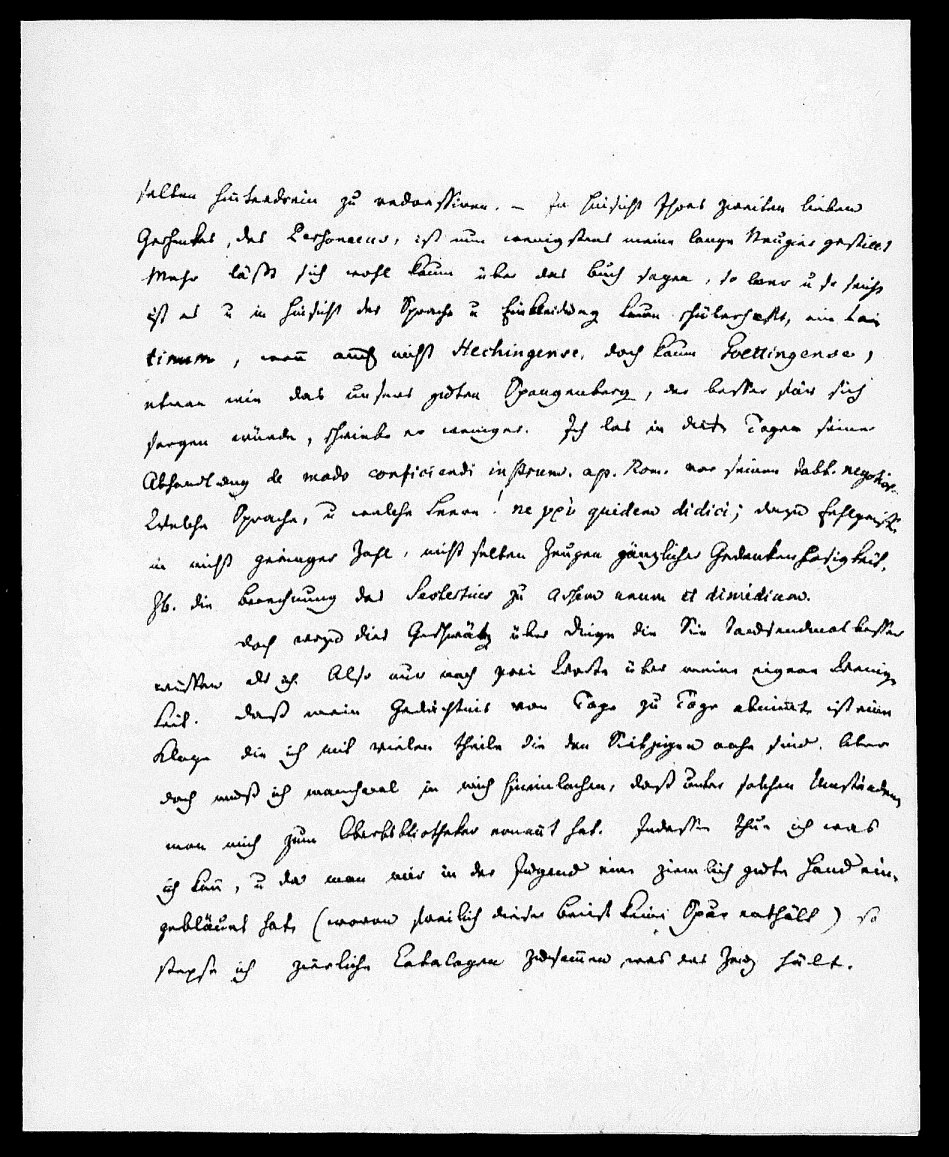 selben hinterdrein zu redressiren. – In Hinsicht Ihres zweiten lieben
Geschenkes, des , ist nun wenigstens meine lange Neugier gestillt
Mehr läßt sich wohl kaum über das Buch sagen, so leer u so seicht
ist es u in Hinsicht der Sprache u Einkleidung kaum schülerhaft, ein La-
tinum, wenn auch nicht Hechingense, doch kaum Goettingense,
etwan wie das unsers guten Spangenberg, der besser für sich
sorgen würde, schriebe er weniger. Ich las in diesen Tagen seine
Abhandlung de modo conficiendi instrum. ap. Rom. vor seinen tabb. negotior.
Welche Sprache, u welche Leere! ne γρὺ quidem didici; dazu Fehlgriffe
in nicht geringer Zahl, nicht selten Zeugen gänzlicher Gedankenlosigkeit.
zb. die Berechnung des Sestertius zu assem unum et dimidium.
Doch wozu dies Geschwätz über Dinge die Sie tausendmal besser
wissen als ich. Also nur noch zwei Worte über meine eigene Wenig-
keit. Daß mein Gedächtnis von Tage zu Tage abnimmt ist eine
Klage die ich mit vielen theile die den Siebzigen nahe sind. Aber
doch muß ich manchmal in mich hineinlachen, daß unter solchen Umständen
man mich zum Oberbibliothekar ernannt hat. Indessen thue ich was
ich kann, u da man mir in der Jugend eine ziemlich gute Hand ein-
gebläut hat, (wovon freilich dieser Brief keine Spur enthält) so
 ich zierliche Catalogen zusammen, was das Zeug hält.